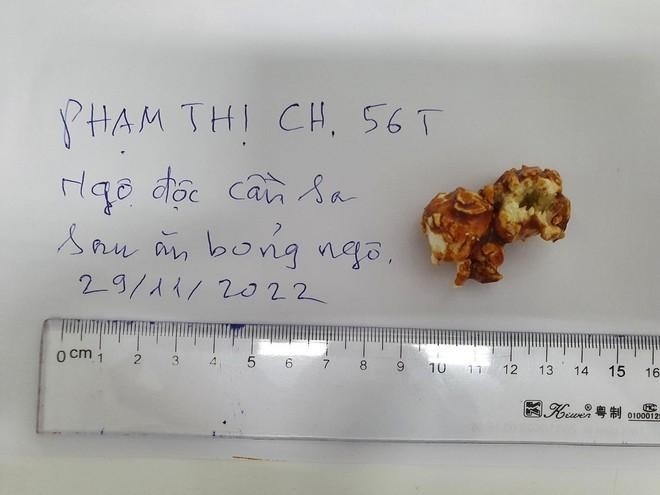 PHẠM THỊ CH. 56T
Ngộ độc cần sa
sau ăn bỏng ngô.
29/11/2022
0 cm 1 2 3 4 5 6 7 8 9 10 11 12 13 14 15 16
Kiwen® 粤制 MC